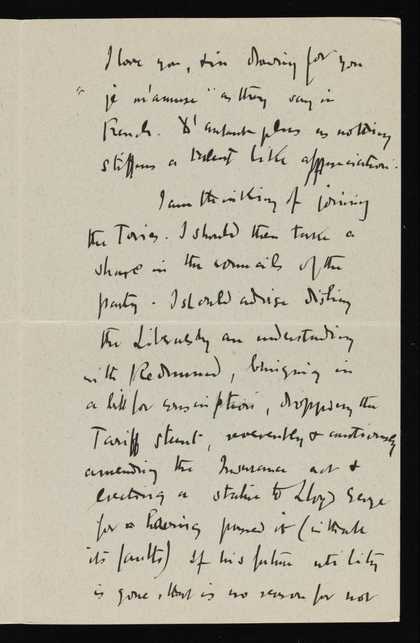 I love you, & in drawing for you
"je m'amuse" as they say in
French. D'autant plus as nothing
stiffens a talent like appreciation.
I am thinking of joining
the Tories. I should then take a
share in the councils of the
party. I should advise dishing
the Liberals by an understanding
with Redmond, bringing in
a bill for conscription, dropping the
Tariff stunt, reverently & cautiously
amending the Insurance act &
erecting a statue to Lloyd George
for having passed it (in its
its faults) If his future utility
is gone, that is no reason for not